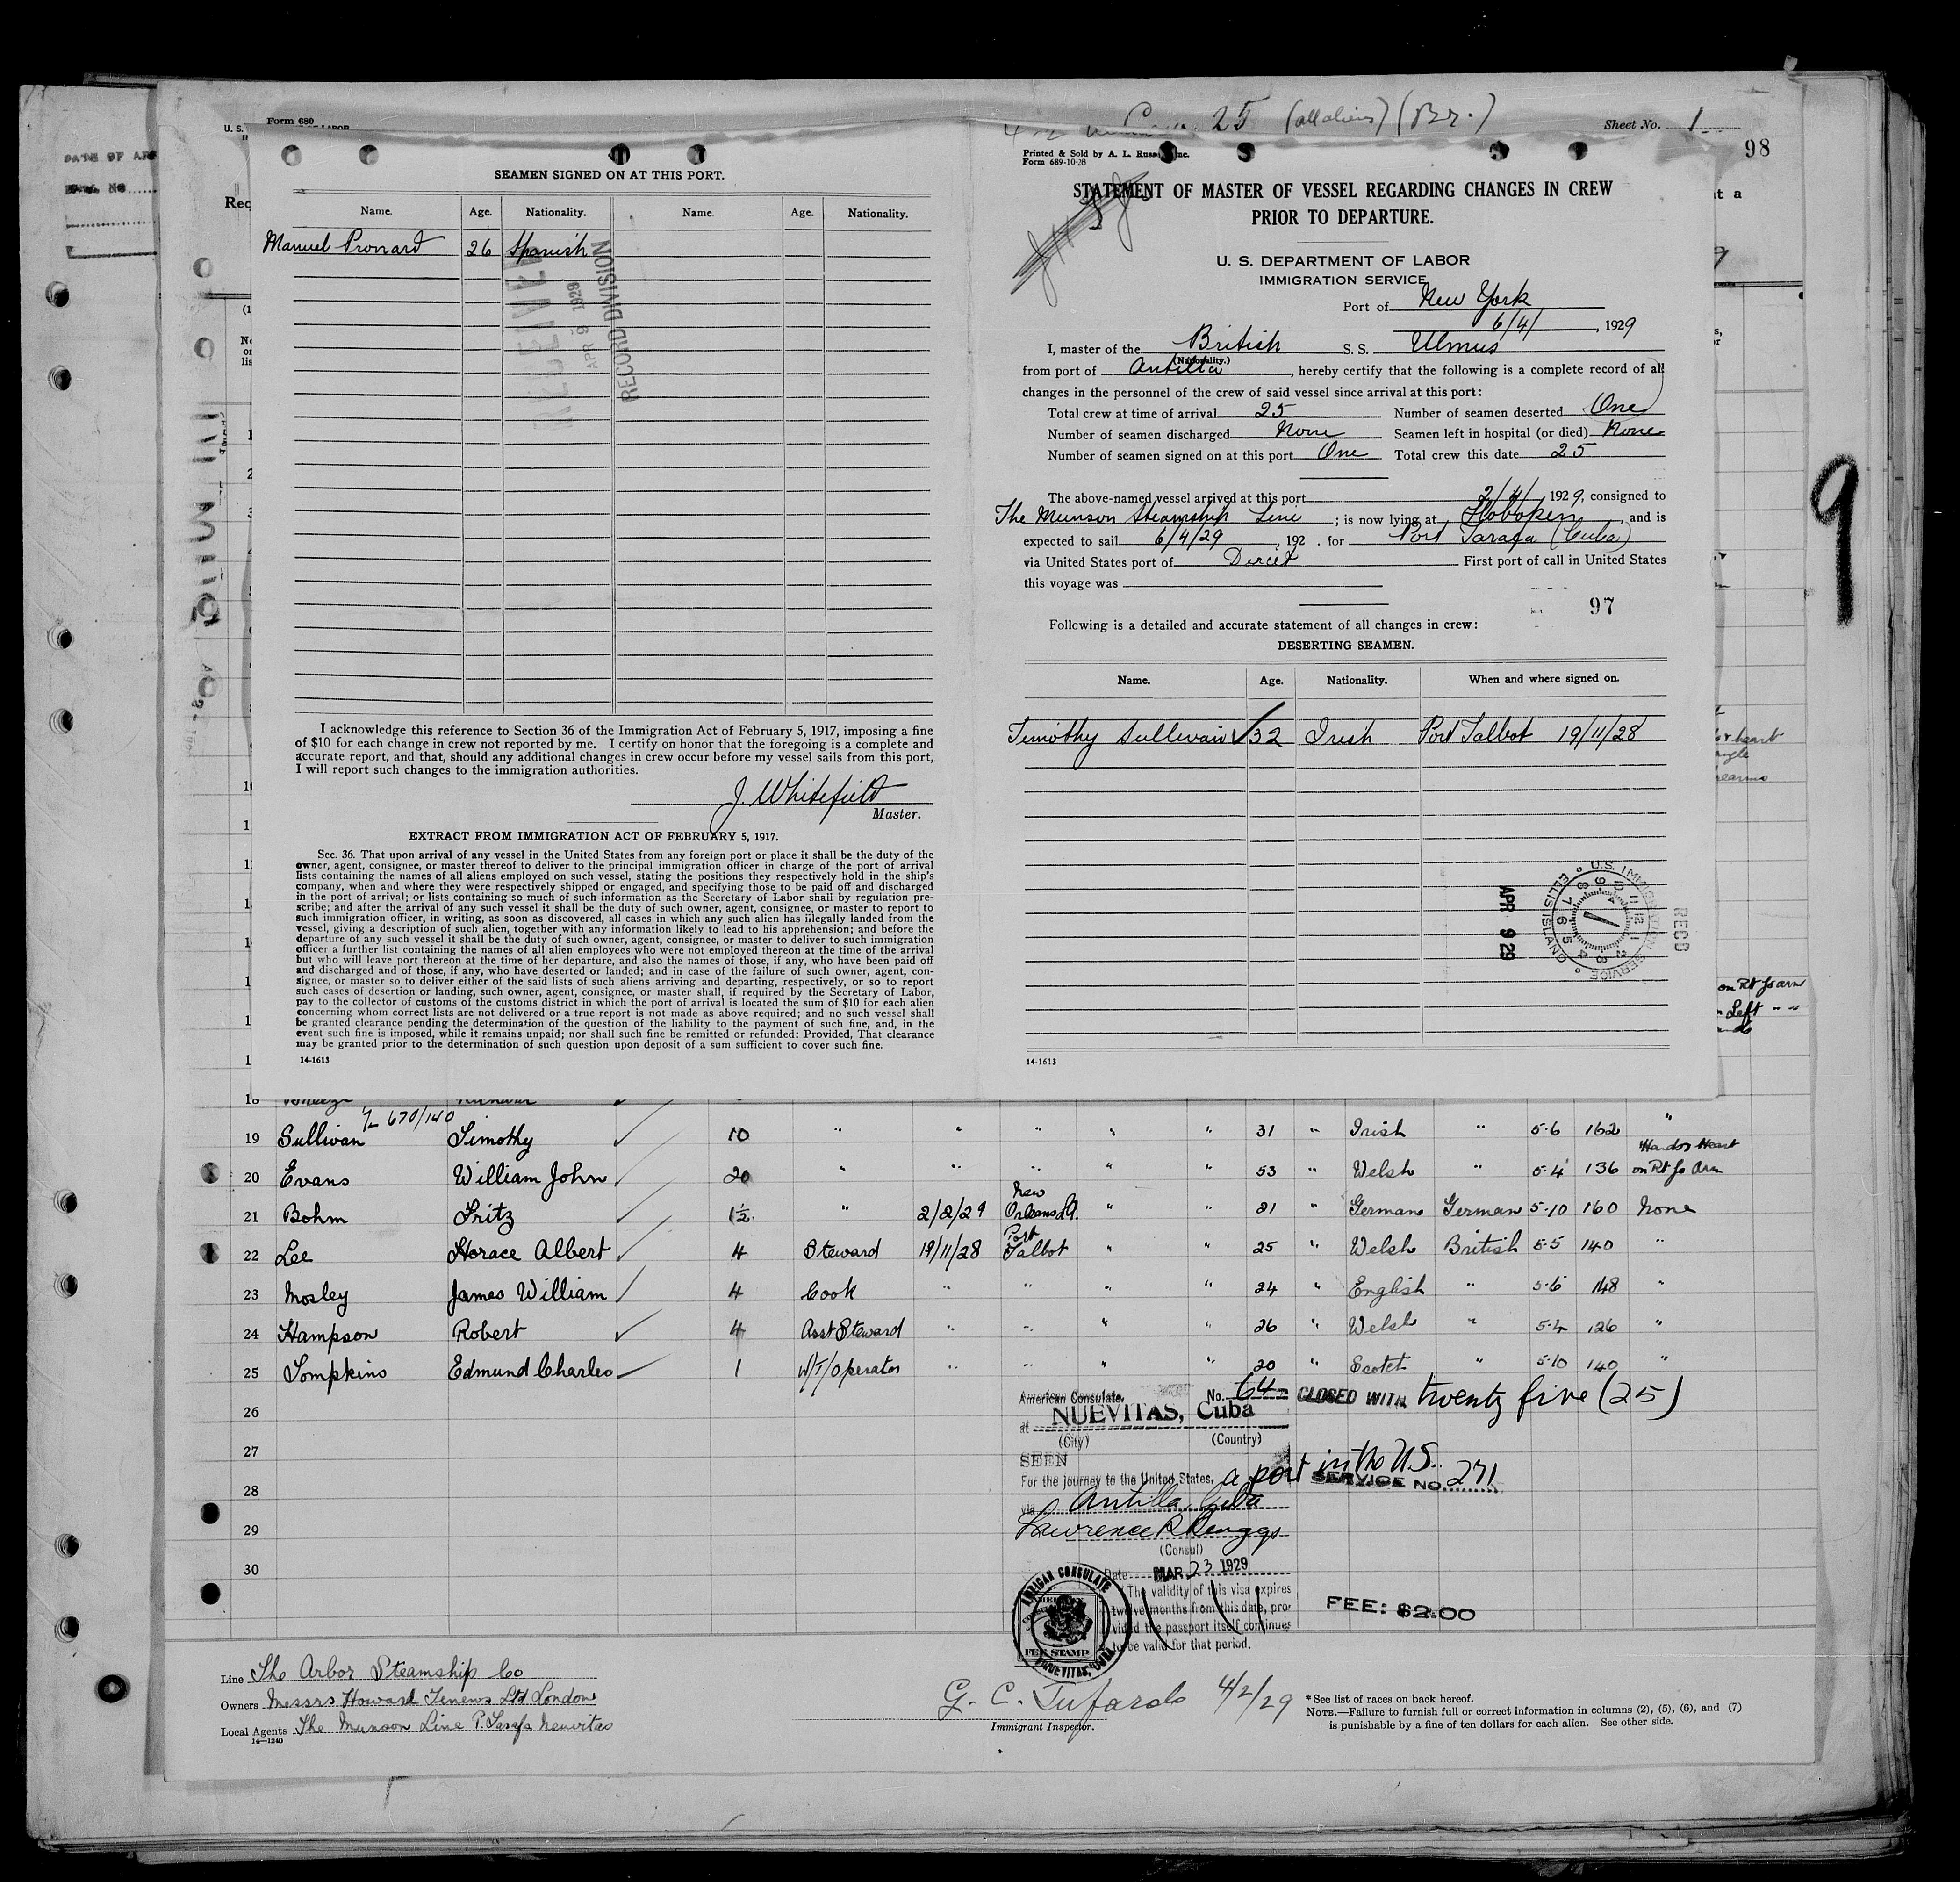 Form 680
U. S.
SEAMEN SIGNED ON AT THIS PORT.
Name. Age. Nationality. Name. Age. Nationality.
Manuel 26 Spanish
RECORD DIVISION
APR 9 1929
I acknowledge this reference to Section 36 of the Immigration Act of February 5, 1917, imposing a fine
of $10 for each change in crew not reported by me. I certify on honor that the foregoing is a complete and
accurate report, and that, should any additional changes in crew occur before my vessel sails from this port,
I will report such changes to the immigration authorities.
J. Whitefield
Master.
EXTRACT FROM IMMIGRATION ACT OF FEBRUARY 5, 1917.
Sec. 36. That upon arrival of any vessel in the United States from any foreign port or place it shall be the duty of the
owner, agent, consignee, or master thereof to deliver to the principal immigration officer in charge of the port of arrival
lists containing the names of all aliens employed on such vessel, stating the positions they respectively hold in the ship's
company, when and where they were respectively shipped or engaged, and specifying those to be paid off and discharged
in the port of arrival; or lists containing so much of such information as the Secretary of Labor shall by regulation pre-
scribe; and after the arrival of any such vessel it shall be the duty of such owner, agent, consignee, or master to report to
such immigration officer, in writing, as soon as discovered, all cases in which any such alien has illegally landed from the
vessel, giving a description of such alien, together with any information likely to lead to his apprehension; and before the
departure of any such vessel it shall be the duty of such owner, agent, consignee, or master to deliver to such immigration
officer a further list containing the names of all alien employees who were not employed thereon at the time of the arrival
but who will leave port thereon at the time of her departure, and also the names of those, if any, who have been paid off
and discharged and of those, if any, who have deserted or landed; and in case of the failure of such owner, agent, con-
signee, or master so to deliver either of the said lists of such aliens arriving and departing, respectively, or so to report
such cases of desertion or landing, such owner, agent, consignee, or master shall, if required by the Secretary of Labor,
pay to the collector of customs of the customs district in which the port of arrival is located the sum of $10 for each alien
concerning whom correct lists are not delivered or a true report is not made as above required; and no such vessel shall
be granted clearance pending the determination of the question of the liability to the payment of such fine, and, in the
event such fine is imposed, while it remains unpaid; nor shall such fine be remitted or refunded: Provided, That clearance
may be granted prior to the determination of such question upon deposit of a sum sufficient to cover such fine.
14-1613
25 (all aliens) (Br.)
Sheet No. 1
98
Printed & Sold by A. L. Russell, Inc.
Form 689-10-28
STATEMENT OF MASTER OF VESSEL REGARDING CHANGES IN CREW
PRIOR TO DEPARTURE.
U. S. DEPARTMENT OF LABOR
IMMIGRATION SERVICE
Port of New York
6/4/, 1929
I, master of the British S. S. Ulmus
(Nationality.)
from port of Antilla, hereby certify that the following is a complete record of all
changes in the personnel of the crew of said vessel since arrival at this port:
Total crew at time of arrival 25 Number of seamen deserted One
Number of seamen discharged None Seamen left in hospital (or died) None
Number of seamen signed on at this port One Total crew this date 25
The above-named vessel arrived at this port 2/4/ 1929, consigned to
The Munson Steamship Line; is now lying at Hoboken, and is
expected to sail 6/4/29, 192 . for Port Tarafa (Cuba)
via United States port of Direct First port of call in United States
this voyage was
97
Following is a detailed and accurate statement of all changes in crew:
DESERTING SEAMEN.
Name. Age. Nationality. When and where signed on.
Timothy Sullivan 32 Irish Port Talbot 19/11/28
U.S. IMMIGRATION SERVICE ELLIS ISLAND
RECD
APR 9 29
14-1613
9
on Rt fo arm
Left " "
670/140
19 Sullivan Timothy 10 " " " " " 31 " Irish " 5-6 162 "
20 Evans William John 20 " " " " " 53 " Welsh " 5-4 136 Hands Heart on Rt fo Arm
21 Bohm Fritz 1½ " 2/2/29 New Orleans LA. " " 21 " German German 5-10 160 None
22 Lee Horace Albert 4 Steward 19/11/28 Port Talbot " " 25 " Welsh British 5-5 140 "
23 Mosley James William 4 Cook " " " " 24 " English " 5-6 148 "
24 Hampson Robert 4 Asst Steward " " " " 26 " Welsh " 5-4 126 "
25 Tompkins Edmund Charles 1 W/T/Operator " " " " 20 " Scotch " 5-10 140 "
26
27
28
29
30
American Consulate. No. 64
CLOSED WITH twenty five (25)
at NUEVITAS, Cuba
(City) (Country)
SEEN
For the journey to the United States, a port in the U.S.
SERVICE NO. 271
via Antilla, Cuba
Lawrence R Briggs
(Consul)
Date MAR 23 1929
The validity of this visa expires
twelve months from this date, pro-
vided the passport itself continues
to be valid for that period.
AMERICAN CONSULATE
FEE STAMP
NUEVITAS, CUBA
FEE: $2.00
Line The Arbor Steamship Co
Owners Messrs Howard Tenens Ltd London
Local Agents The Munson Line P. Tarafa Nuevitas
14—1240
G. C. Tufarolo 4/2/29
Immigrant Inspector.
* See list of races on back hereof.
NOTE.—Failure to furnish full or correct information in columns (2), (5), (6), and (7)
is punishable by a fine of ten dollars for each alien. See other side.